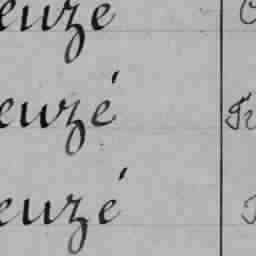 euzé
euzé
euzé